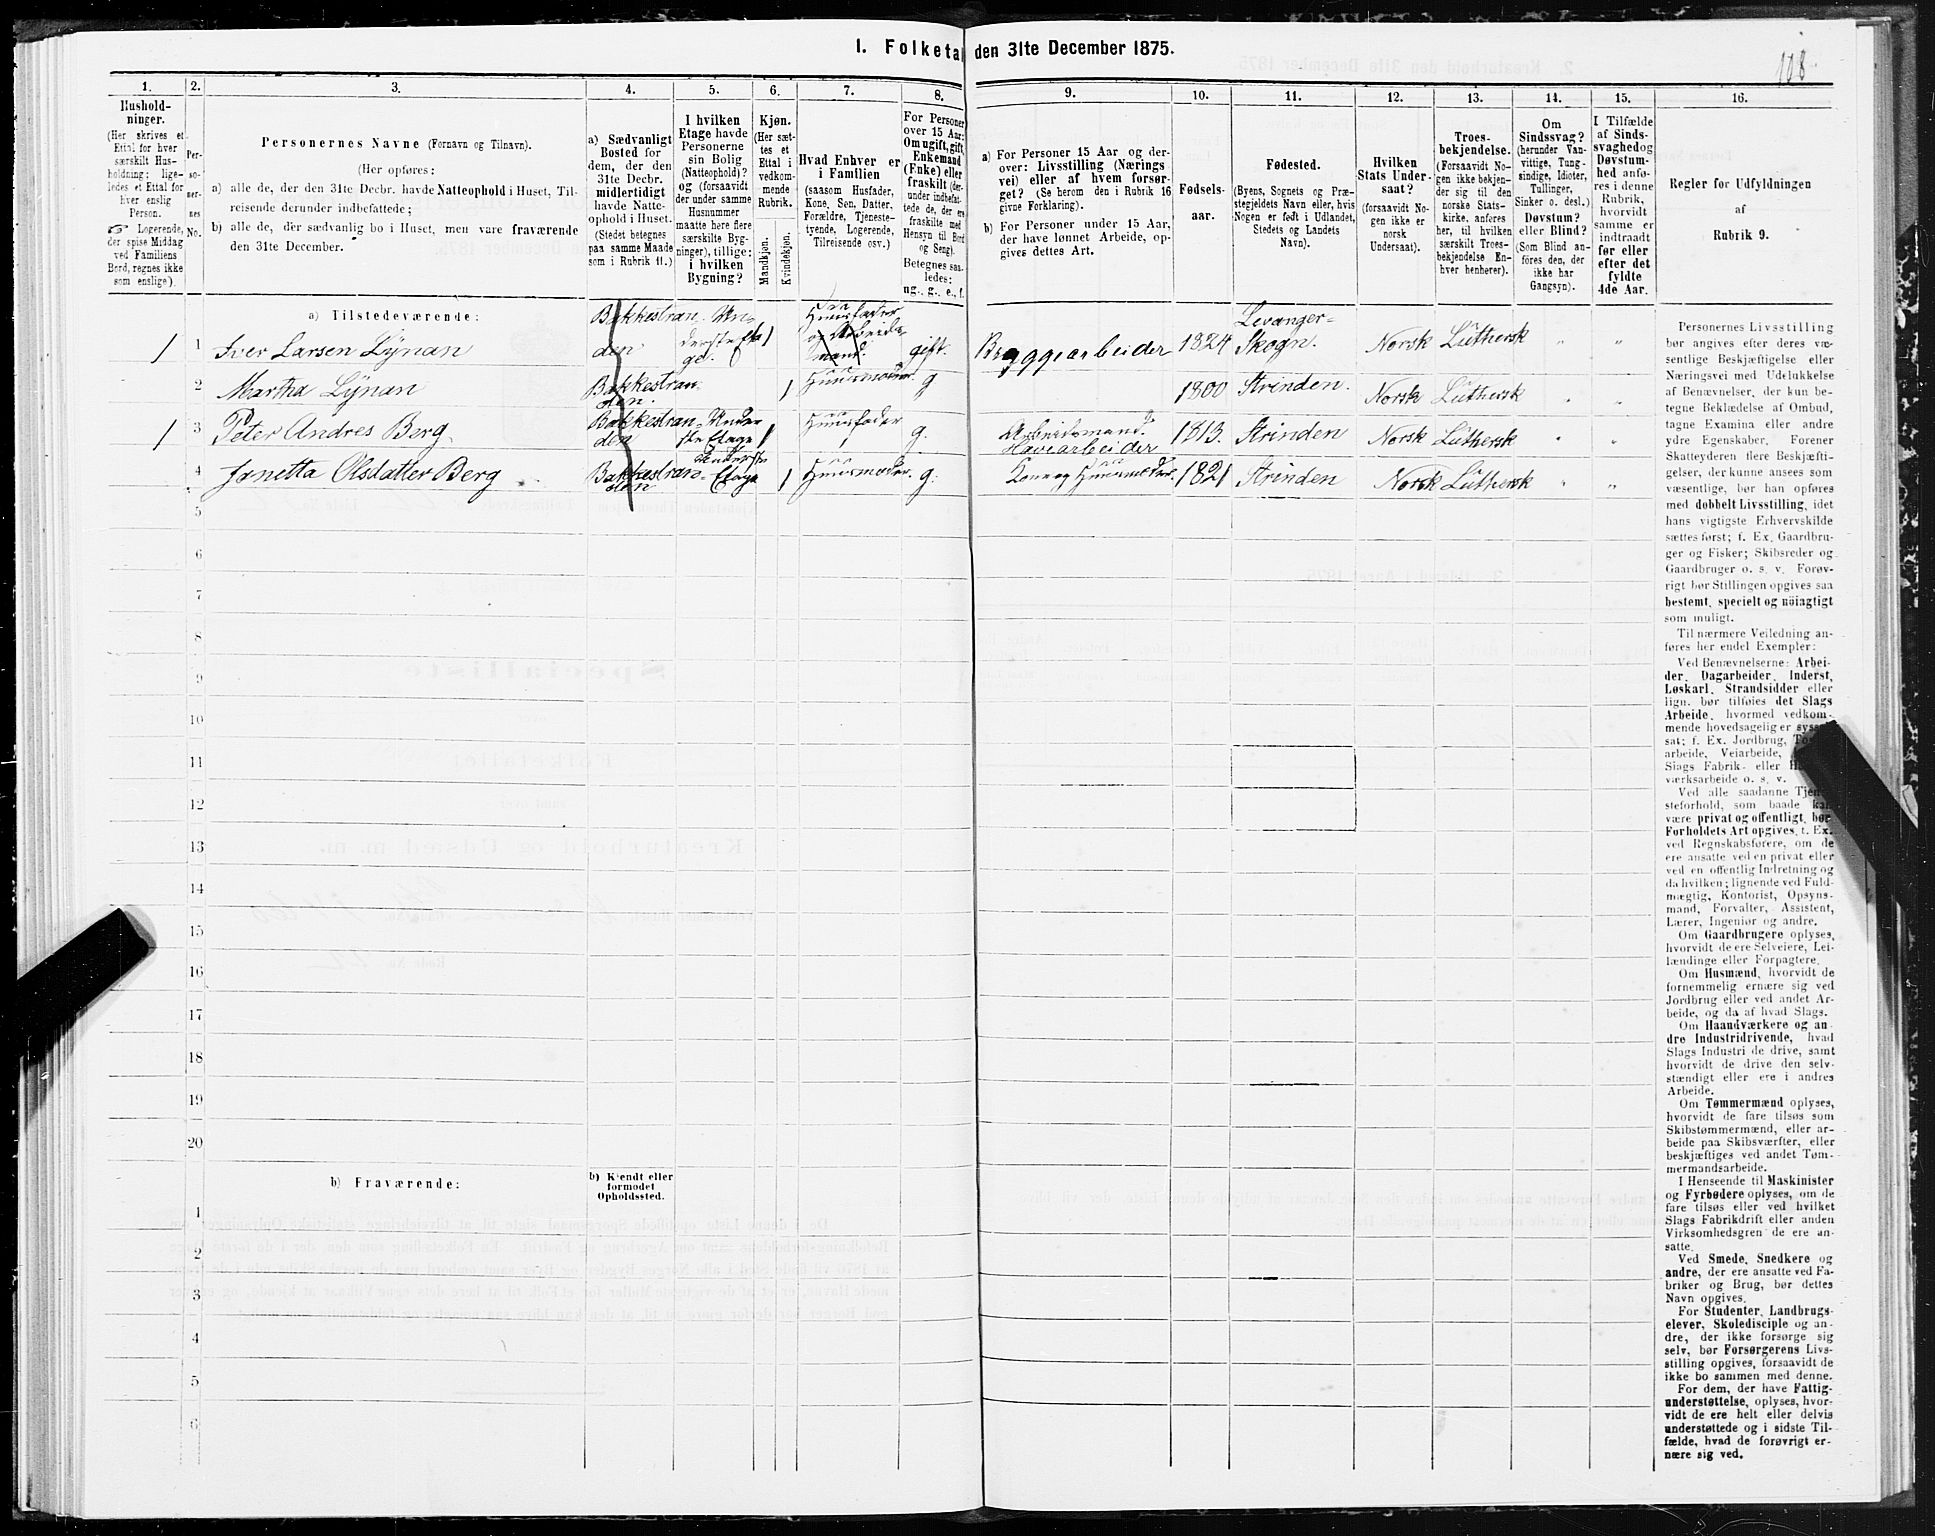 I. Folketal den 31te December 1875.
118
1.
Hushold-
ninger.
(Her skrives et
Ettal for hver
særskilt Hus-
holdning; lige-
ledes et Ettal for
hver enslig
Person.
☞ Logerende,
der spise Middag
ved Familiens
Bord, regnes ikke
som enslige).
2.
Per-
so-
ner-
nes
No.
3.
Personernes Navne (Fornavn og Tilnavn).
(Her opføres:
a) alle de, der den 31te Decbr. havde Natteophold i Huset, Til-
reisende derunder indbefattede;
b) alle de, der sædvanlig bo i Huset, men vare fraværende
den 31te December.
4.
a) Sædvanligt
Bosted for
dem, der den
31te Decbr.
midlertidigt
havde Natte-
ophold i Huset.
(Stedet betegnes
paa samme Maade
som i Rubrik 11.)
5.
I hvilken
Etage havde
Personerne
sin Bolig
(Natteophold)?
og (forsaavidt
der under samme
Husnummer
maatte høre flere
særskilte Byg-
ninger), tillige:
i hvilken
Bygning?
6.
Kjøn.
(Her sæt-
tes et
Ettal i
vedkom-
mende
Rubrik.
Mandkjøn.
Kvindekjøn.
7.
Hvad Enhver er
i Familien
(saasom Husfader,
Kone, Søn, Datter,
Forældre, Tjeneste-
tyende, Logerende,
Tilreisende osv.)
8.
For Personer
over 15 Aar:
Om ugift, gift,
Enkemand
(Enke) eller
fraskilt (der-
under indbefat-
tede de, der ere
fraskilte med
Hensyn til Bord
og Seng).
Betegnes saa-
ledes:
ug., g., e., f.
9.
a) For Personer 15 Aar og der-
over: Livsstilling (Nærings
vei) eller af hvem forsør-
get? (Se herom den i Rubrik 16
givne Forklaring).
b) For Personer under 15 Aar,
der have lønnet Arbeide, op-
gives dettes Art.
10.
Fødsels-
aar.
11.
Fødested.
(Byens, Sognets og Præ-
stegjeldets Navn eller, hvis
Nogen er født i Udlandet,
Stedets og Landets
Navn).
12.
Hvilken
Stats Under-
saat?
(forsaavidt No-
gen ikke er
norsk
Undersaat).
13.
Troes-
bekjendelse.
(Forsaavidt No-
gen ikke bekjen-
der sig til den
norske Stats-
kirke, anføres
her, til hvilken
særskilt Troes-
bekjendelse En-
hver henhører).
14.
Om
Sindssvag?
(herunder Van-
vittige, Tung-
sindige, Idioter,
Tullinger,
Sinker o. desl.)
Døvstum?
eller Blind?
(Som Blind an-
føres den, der
ikke har
Gangsyn).
15.
I Tilfælde
af Sinds-
svaghed og
Døvstum-
hed anfø-
res i denne
Rubrik,
hvorvidt
samme er
indtraadt
før eller
efter det
fyldte
4de Aar.
16.
Regler for Udfyldningen
af
Rubrik 9.
a) Tilstedeværende:
1 1 Iver Larsen Lÿnan Bakkestran den. Un derste Eta ge. 1 Huusfader og Arbeids mand. gift. Bryggearbeider 1824 Levanger- Skogn. Norsk Lüthersk " "
2 Martha Lÿnan Bakkestran den. 1 Huusmoder. g 1800 Strinden. Norsk Lüthersk " "
1 3 Peter Andres Berg. Bakkestran den Under ste Etage 1 Huusfader g. Arbeidsmand. Havearbeider 1813. Strinden Norsk Lüthersk " "
4 Janetta Olsdatter Berg Bakkestran den Underste Etage 1 Huusmoder. g. Kone og Huusmoder. 1821 Strinden Norsk Lüthersk " "
5
6
7
8
9
10
11
12
13
14
15
16
17
18
19
20
b) Fraværende:
b) Kjendt eller
formodet
Opholdssted.
1
2
3
4
5
6
Personernes Livsstilling
bør angives efter deres væ-
sentlige Beskjæftigelse eller
Næringsvei med Udelukkelse
af Benævnelser, der kun be-
tegne Beklædelse af Ombud,
tagne Examina eller andre
ydre Egenskaber. Forener
Skatteyderen flere Beskjæfti-
gelser, der kunne ansees som
væsentlige, bør han opføres
med dobbelt Livsstilling, idet
hans vigtigste Erhvervskilde
sættes først; f. Ex. Gaardbru-
ger og Fisker; Skibsreder og
Gaardbruger o. s. v. Forøv-
rigt bør Stillingen opgives saa
bestemt, specielt og nöiagtigt
som muligt.
Til nærmere Veiledning an-
føres her endel Exempler:
Ved Benævnelserne: Arbei-
der, Dagarbeider, Inderst,
Løskarl, Strandsidder eller
lign. bør tilføies det Slags
Arbeide, hvormed vedkom-
mende hovedsagelig er syssel-
sat; f. Ex. Jordbrug,
arbeide, Veiarbeide,
Slags Fabrik- eller
værksarbeide o. s. v.
Ved alle saadanne Tjene-
steforhold, som baade kan
være privat og offentligt, bør
Forholdets Art opgives, f. Ex.
ved Regnskabsførere, om de
ere ansatte ved en privat eller
ved en offentlig Indretning og
da hvilken; lignende ved Fuld-
mægtig, Kontorist, Opsyns-
mand, Forvalter, Assistent,
Lærer, Ingeniør og andre.
Om Gaardbrugere oplyses,
hvorvidt de ere Selveiere, Lei-
lændinge eller Forpagtere.
Om Husmænd, hvorvidt de
fornemmelig ernære sig ved
Jordbrug eller ved andet Ar-
beide, og da af hvad Slags.
Om Haandværkere og an-
dre Industridrivende, hvad
Slags Industri de drive, samt
hvorvidt de drive den selv-
stændigt eller ere i andres
Arbeide.
Om Tømmermænd oplyses,
hvorvidt de fare tilsøs som
Skibstømmermænd, eller ar-
beide paa Skibsværfter, eller
beskjæftiges ved andet Tøm-
mermandsarbeide.
I Henseende til Maskinister
og Fyrbødere oplyses, om de
fare tilsøs eller ved hvilket
Slags Fabrikdrift eller anden
Virksomhedsgren de ere an-
satte.
Ved Smede, Snedkere og
andre, der ere ansatte ved Fa-
briker og Brug, bør dettes
Navn opgives.
For Studenter, Landbrugs-
elever, Skoledisciple og an-
dre, der ikke forsørge sig
selv, bør Forsørgerens Livs-
stilling opgives, forsaavidt de
ikke bo sammen med denne.
For dem, der have Fattig-
understøttelse, oplyses, hvor-
vidt de ere helt eller delvis
understøttede og i sidste Til-
fælde, hvad de forøvrigt er-
nære sig ved.